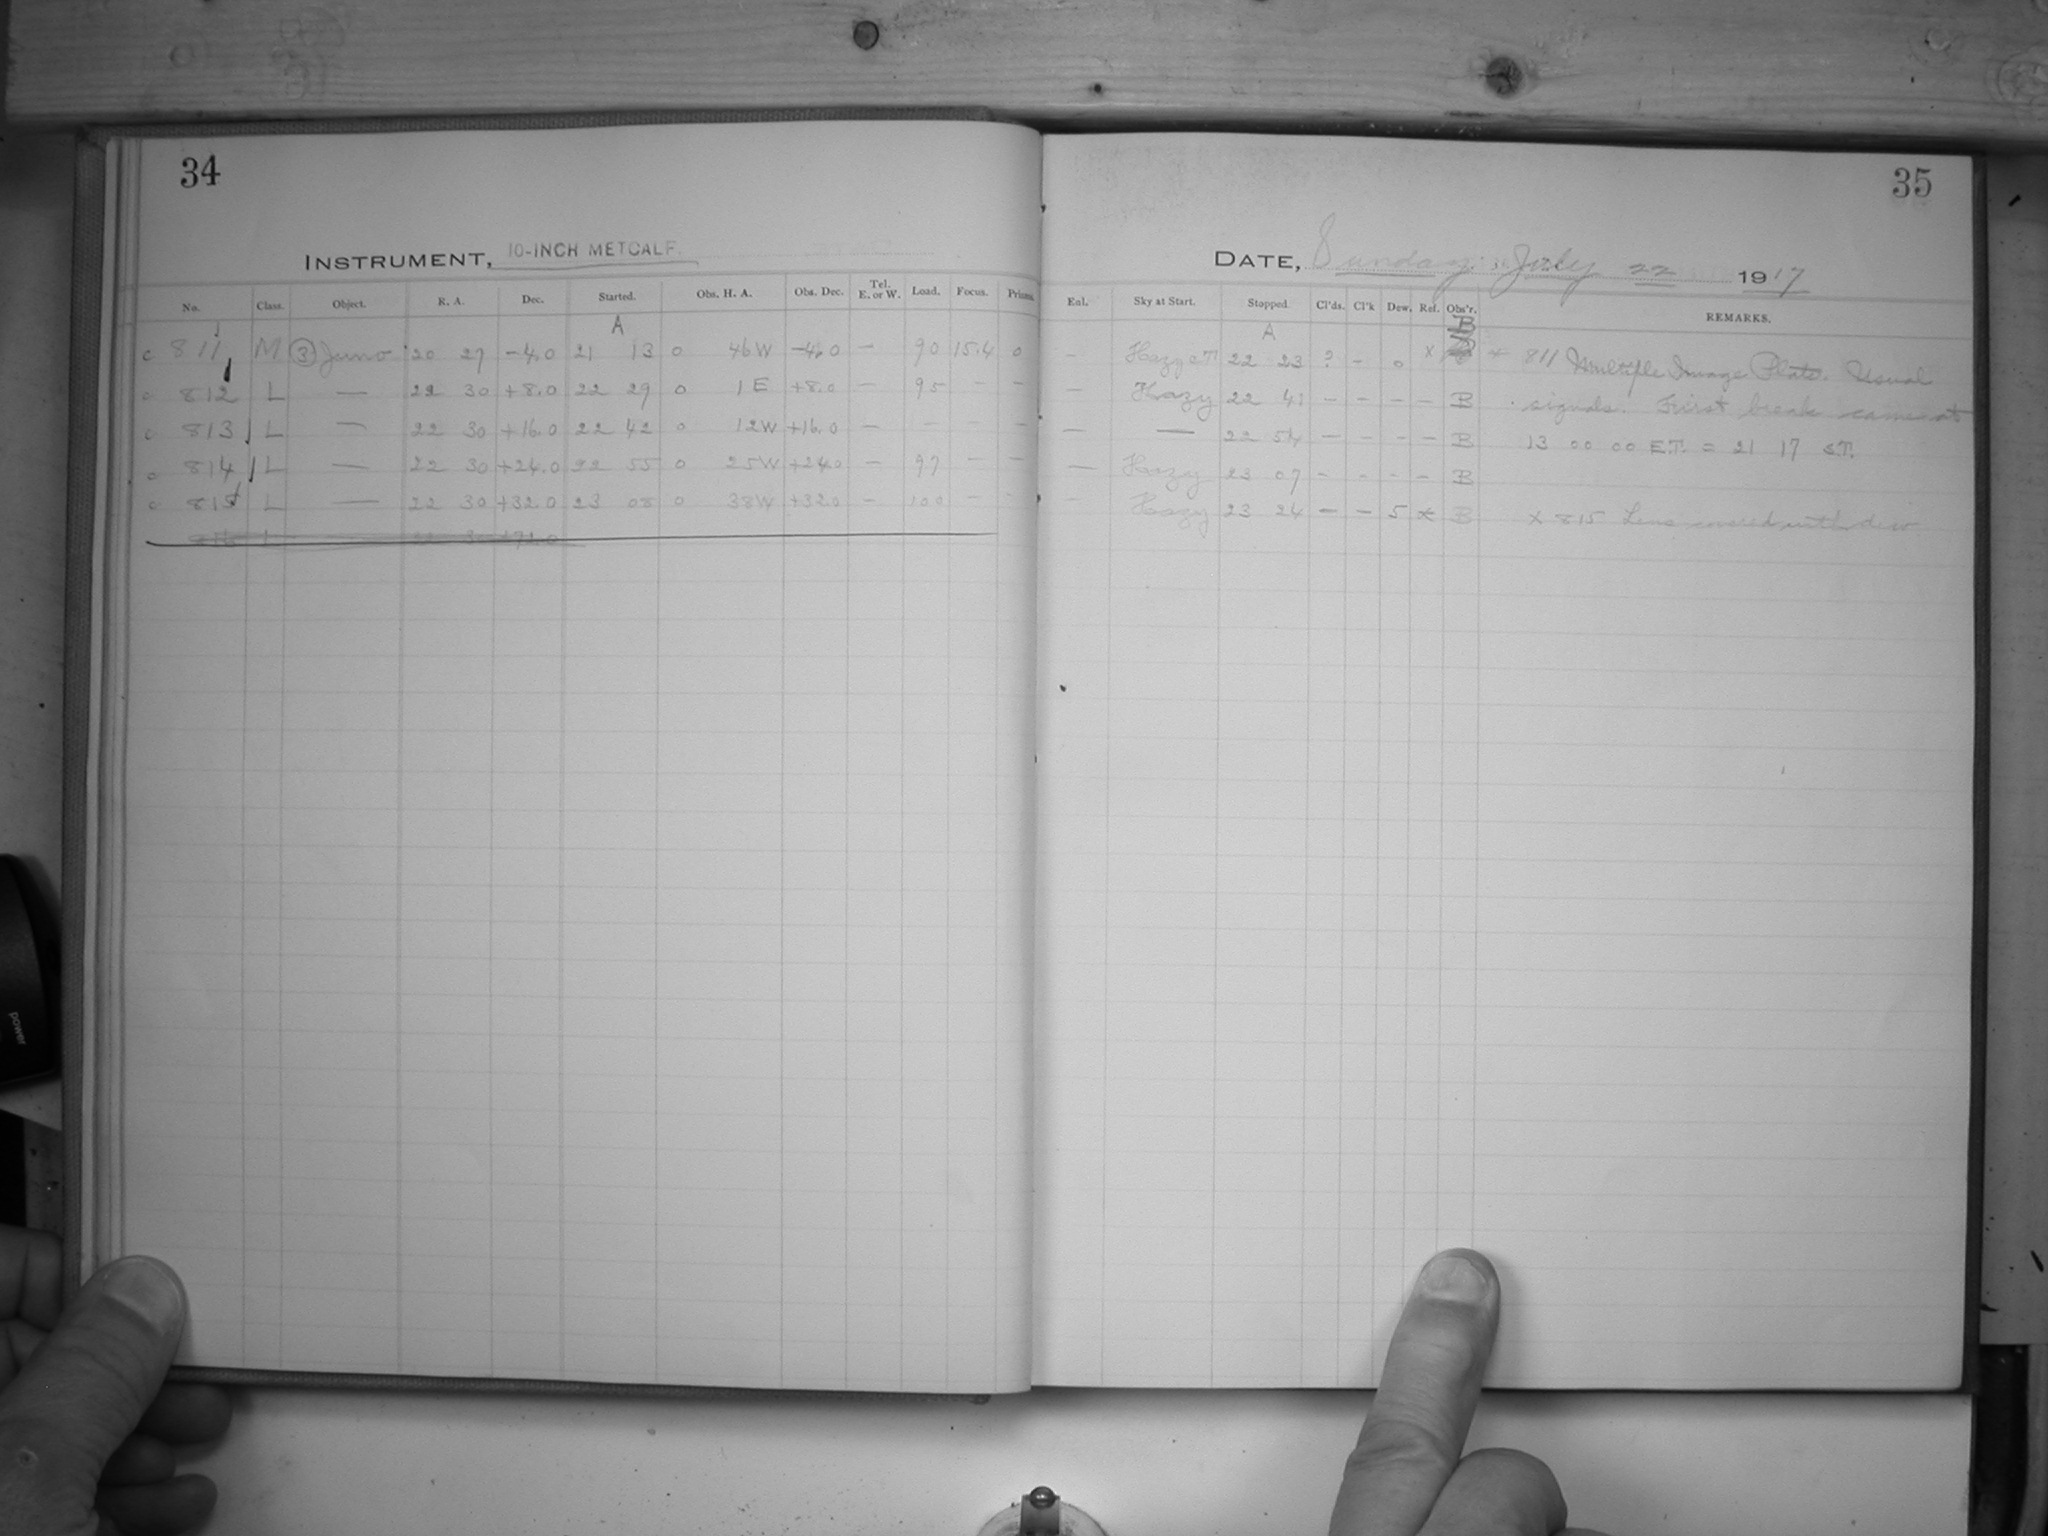 34
35
INSTRUMENT, 10-INCH METCALF.
DATE, Sunday, July 22 1917
No. Class. Object. R. A. Dec. Started. Obs. H. A. Obs. Dec. Tel. E. or W. Load. Focus. Prism.
Enl. Sky at Start. Stopped. Cl'ds. Cl'k Dew. Ref. Obs'r. REMARKS.
A
A
B
c 811 M ③ Juno 20 27 -4.0 21 13 0 46W -4.0 - 90 15.4 0
- Hazy 22 23 ? - 0 x * 811 Multiple Image Plate. Usual
c 812 L — 22 30 +8.0 22 29 0 1E +8.0 - 95 - -
- Hazy 22 41 - - - - B signals. First break came at
c 813 L — 22 30 +16.0 22 42 0 12W +16.0 - - - -
- — 22 54 - - - - B 13 00 00 E.T. = 21 17 S.T.
c 814 L — 22 30 +24.0 22 55 0 25W +24.0 - 97 - -
- Hazy 23 07 - - - - B
c 815 L — 22 30 +32.0 23 08 0 38W +32.0 - 100 - -
- Hazy 23 24 - - 5 x B x 815 Lens covered with dew
power